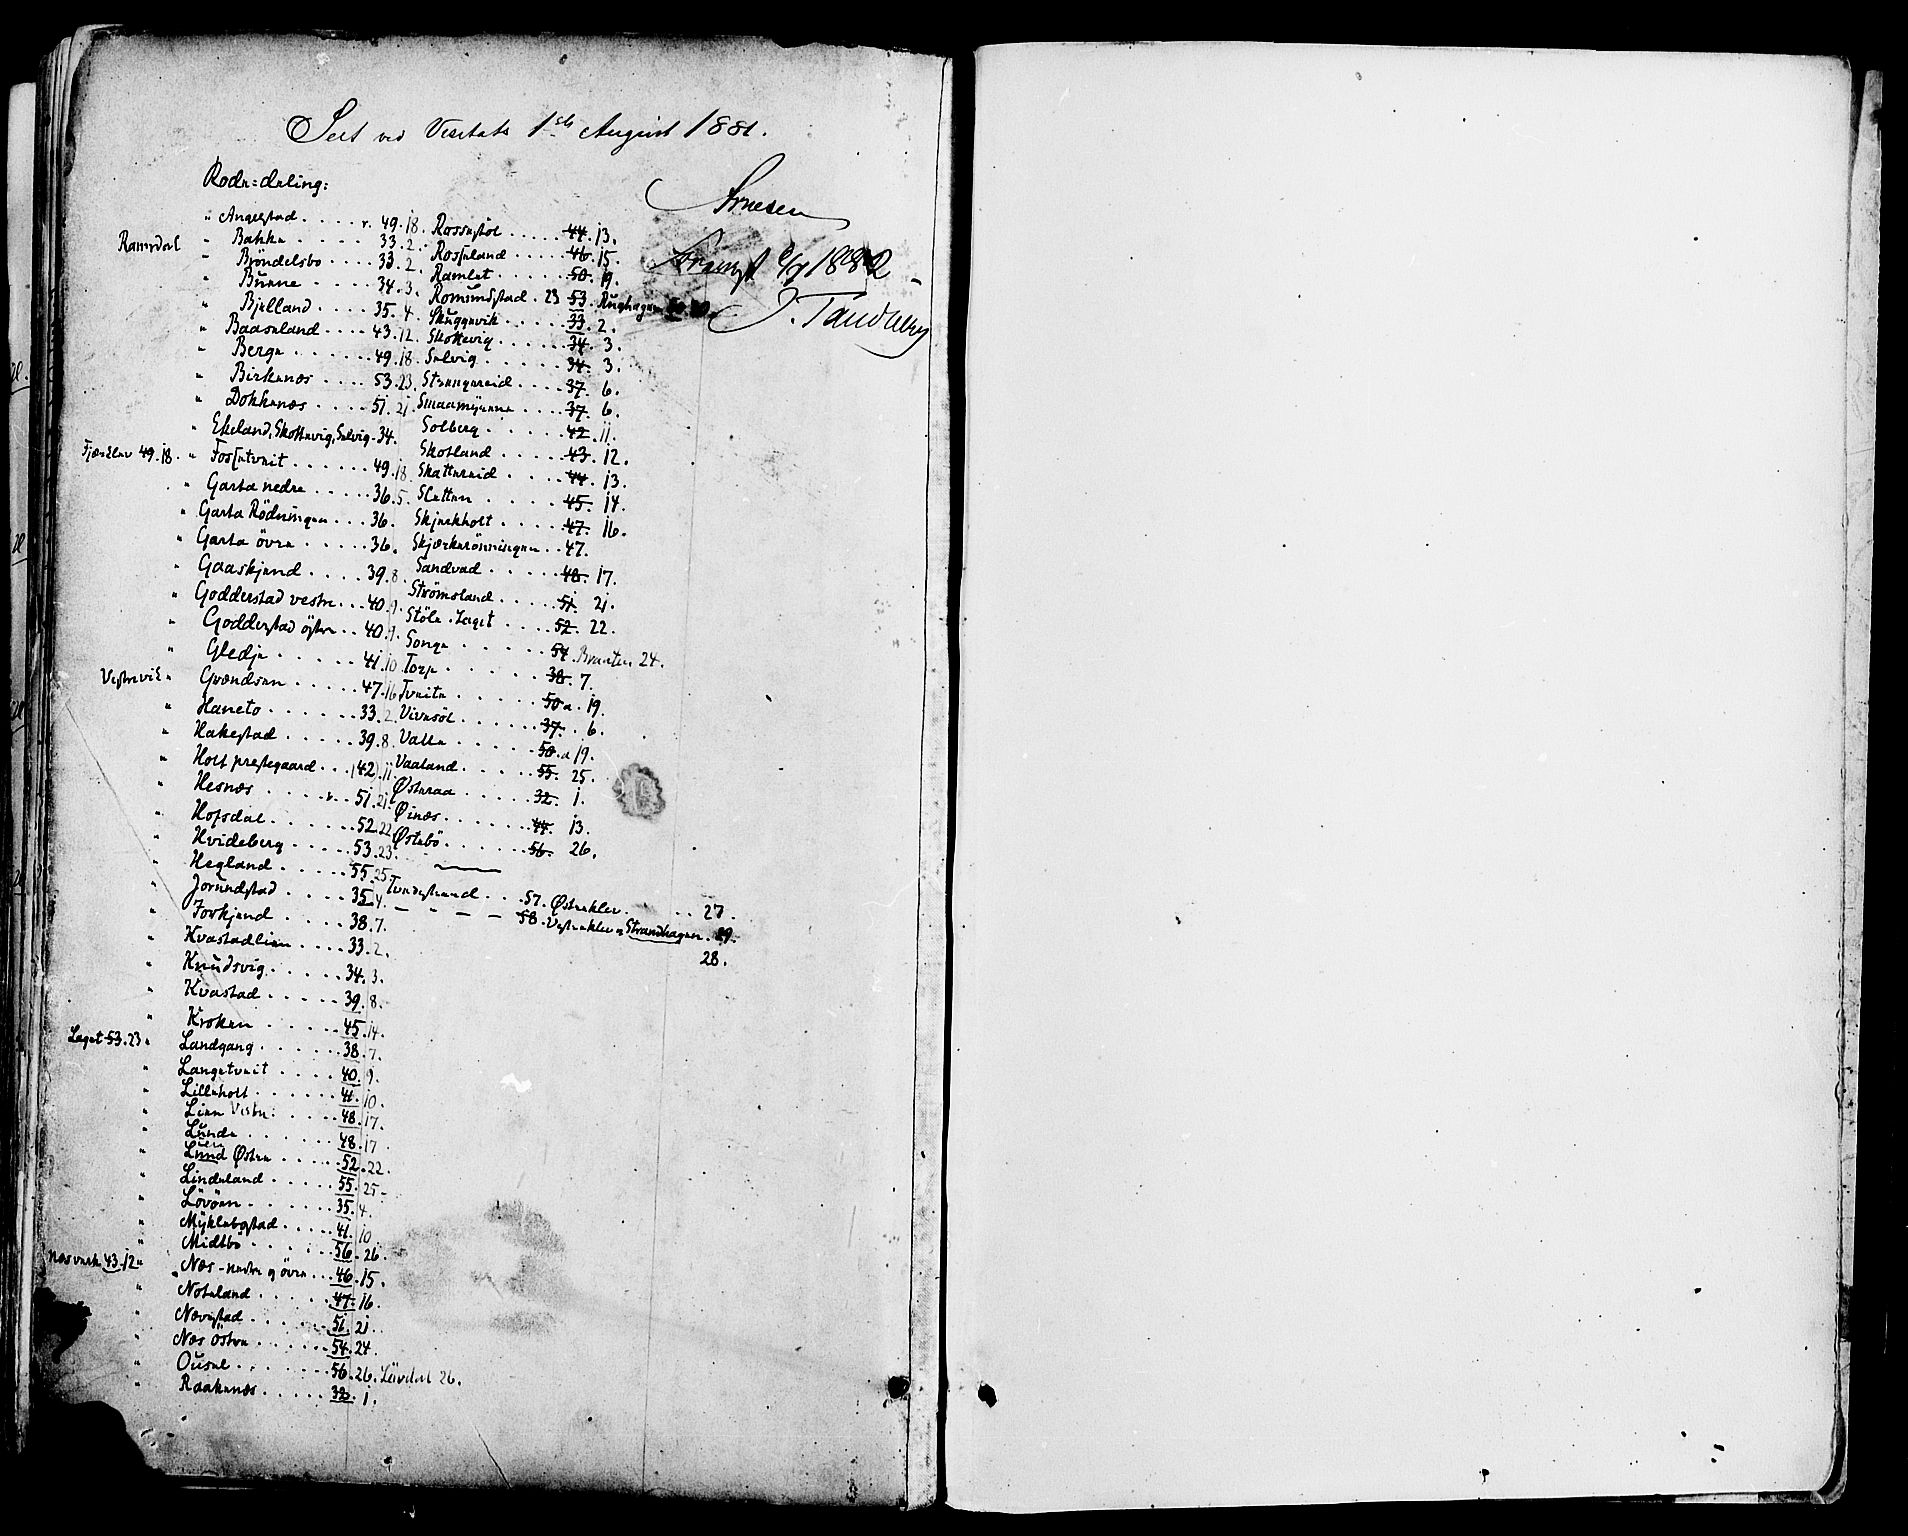 Seet ved Visitats 1ste August 1881.
Arnesen
Rode=deling:
" Angelstad . . . . . 49.18.
Ramsdal " Bakke . . . . . 33.2.
" Bröndelsbo . . . . 33.2.
" Bunne . . . . 34.3.
" Bjelland . . . . 35.4.
" Baaseland . . . . 43.12.
" Berge . . . . . 49.18
" Birkenæs . . . . 53.23.
" Dokkenæs . . . . 51.21.
" Ekeland, Skottevig, Selvig. 34.
Fjæreklev 49.18. " Fosseveit . . . . . 49.18
" Garta nedre . . . . 36.5.
" Garta Rödningen . . . 36.
" Garta övre . . . . . 36.
" Gaaskjend . . . . 39.8.
" Godderstad vestre . . . 40.9.
" Godderstad östre . . 40.9.
" Gledje . . . . . 41.10
Vestrevik " Grændsen . . . . . 47.16
" Haneto . . . . . . 33.2.
" Hakestad . . . . . 39.8.
" Holt prestegaard . . . (42).11.
" Hesnæs . . . . . 51.21.
" Hofsdal . . . . . . 52.22
" Hvideberg . . . . . 53.23.
" Hegland . . . . . 55.25.
" Jorundstad . . . . . 35.4.
" Jorkjend . . . . . 38.7.
" Kvastadlien . . . . 33.2.
" Knudsvig . . . . . 34.3.
" Kvastad . . . . . 39.8.
" Kroken . . . . . . 45.14.
Laget 53.23. " Landgang . . . . . . 38.7.
" Langetveit . . . . . 40.9.
" Lilleholt . . . . . . 41.10.
" Lien Vestre . . . . . 48.17.
" Lunde . . . . . . 48.17
" Lund Østre . . . . . 52.22.
" Lindeland . . . . . 55.25.
" Lövöen . . . . . . 35.4.
" Myklebostad . . . . 41.10
" Midtbö . . . . . . 56.26.
Næsverk 43.12. " Næs - nedre og övre . . . 46.15.
" Noteland . . . . . . 47.16.
" Nævestad . . . . . . 51.21.
" Næs Östre . . . . . . 54.24.
" Ousel . . . . . . 56.26. Lövdal 26.
" Raakenæs . . . . . 32.1.
Rossestöl . . . . . 44.13.
Rosseland . . . . 46.15.
Ramlet . . . . . . 50.19.
Romundstad . 23 53. Rughagen
Skuggevik . . . . . 33.2.
Skottevig . . . . . 34.3.
Selvig . . . . . 34.3.
Strengereid . . . . 37.6.
Smaamyrene . . . . 37.6.
Solberg . . . . . . 42.11.
Skotland . . . . . 43.12.
Skattereid . . . . . 44.13.
Sletten . . . . . 45.14.
Skjerkholt . . . . . 47.16.
Skjærkerönningen . . 47.
Sandvad . . . . . 48.17.
Strömsland . . . . . 51.21.
Stöle . Laget . . . . 52.22.
Songe . . . . . . 54. Braaten 24.
Torp . . . . . . . 38.7.
Tveite . . . . . . 50a.19.
Vivesöl . . . . . . 37.6.
Valle . . . . . . 50.a 19.
Vaaland . . . . . 55.25.
Østeraa . . . . . 32.1.
Øinæs . . . . . . 44.13.
Østebö . . . . . . 56.26.
Tvedestrand . . . 57. Østreklev . . . . . 27.
— " — — 58. Vestreklev og Strandhagen . 29.
28.
1882
J. Tandberg